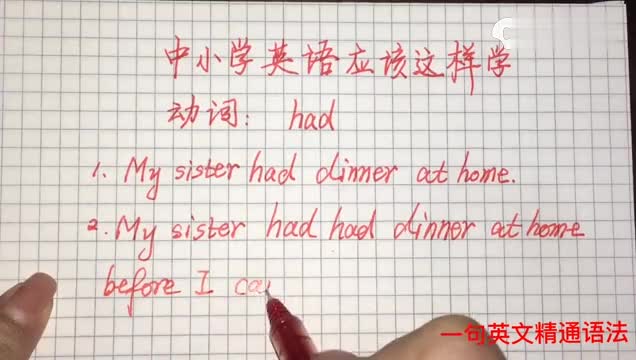 中小学英语应该这样学
动词： had
1. My sister had dinner at home.
2. My sister had had dinner at home
before I ca
一句英文精通语法